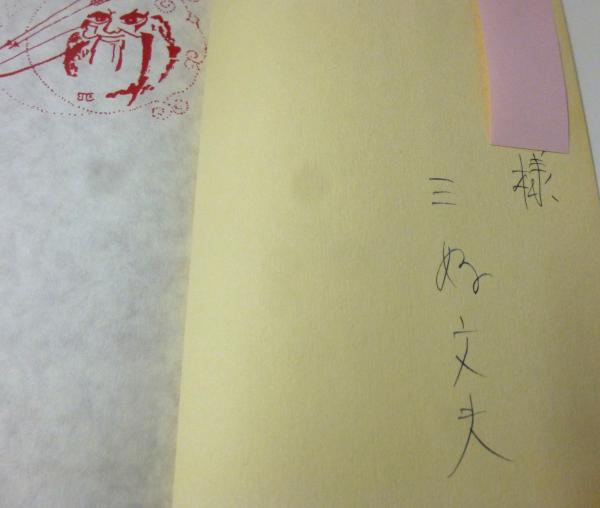 様
三好文夫